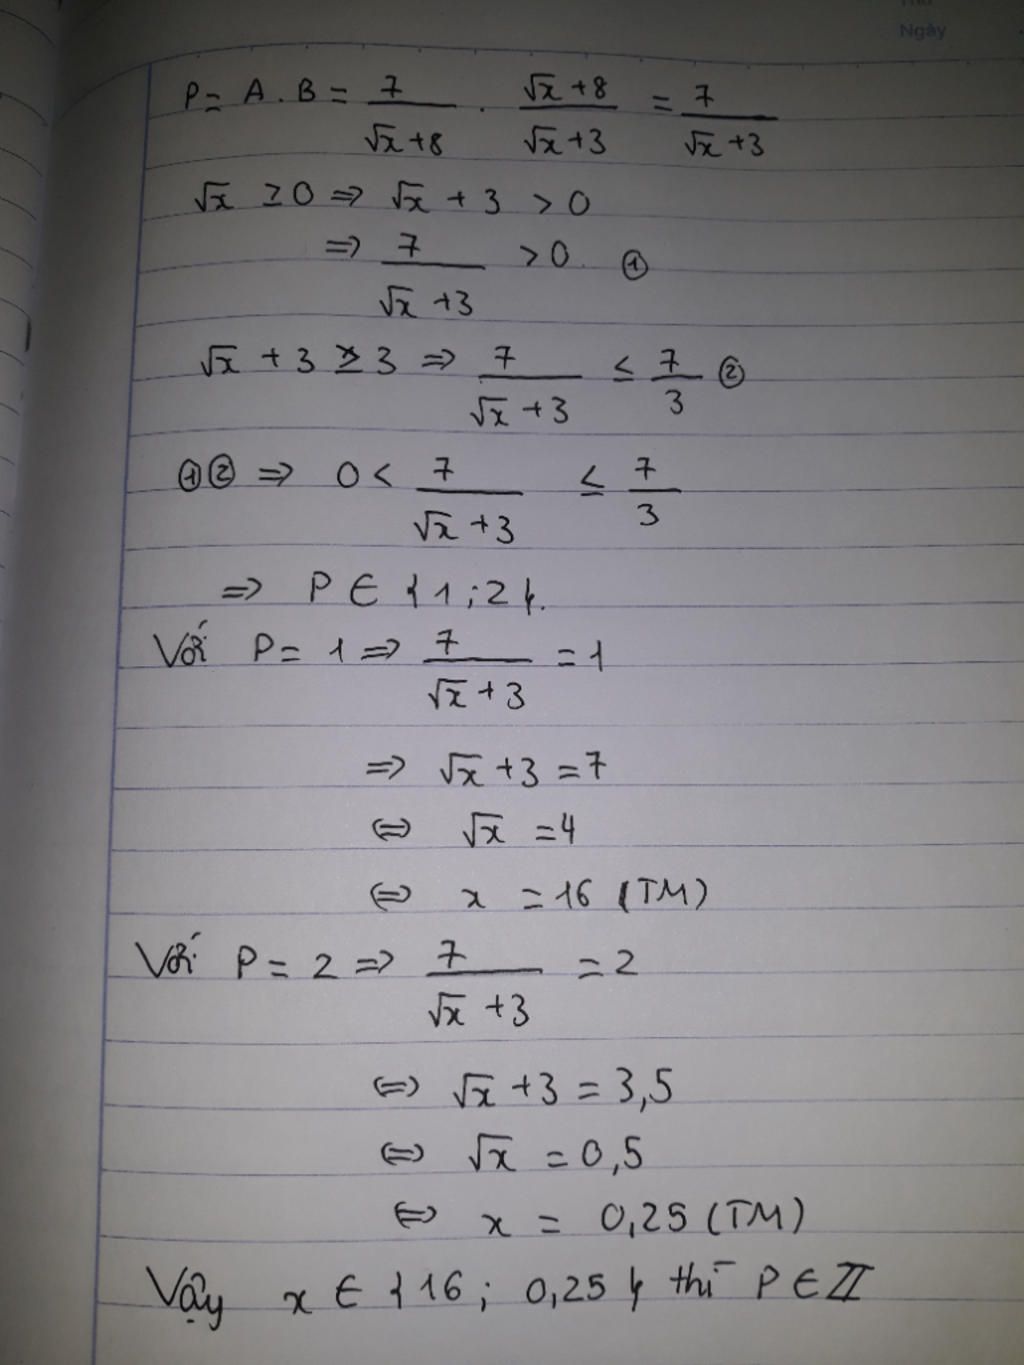 Thứ
Ngày
P = A . B = 7/(√x+8) . (√x+8)/(√x+3) = 7/(√x+3)
√x ≥ 0 ⇒ √x + 3 > 0
⇒ 7/(√x+3) > 0 ①
√x + 3 ≥ 3 ⇒ 7/(√x+3) ≤ 7/3 ②
①② ⇒ 0 < 7/(√x+3) ≤ 7/3
⇒ P ∈ {1;2}.
Với P = 1 ⇒ 7/(√x+3) = 1
⇒ √x+3 = 7
⇔ √x = 4
⇔ x = 16 (TM)
Với P = 2 ⇒ 7/(√x+3) = 2
⇔ √x+3 = 3,5
⇔ √x = 0,5
⇔ x = 0,25 (TM)
Vậy x ∈ {16; 0,25} thì P ∈ ℤ